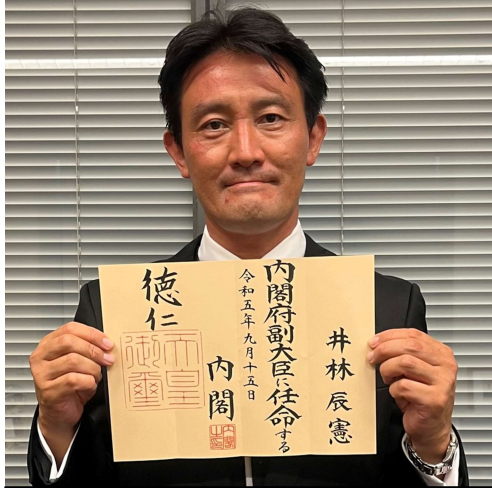 井林辰憲
内閣府副大臣に任命する
令和五年九月十五日
内閣
徳仁
天皇
御璽
内閣
之印